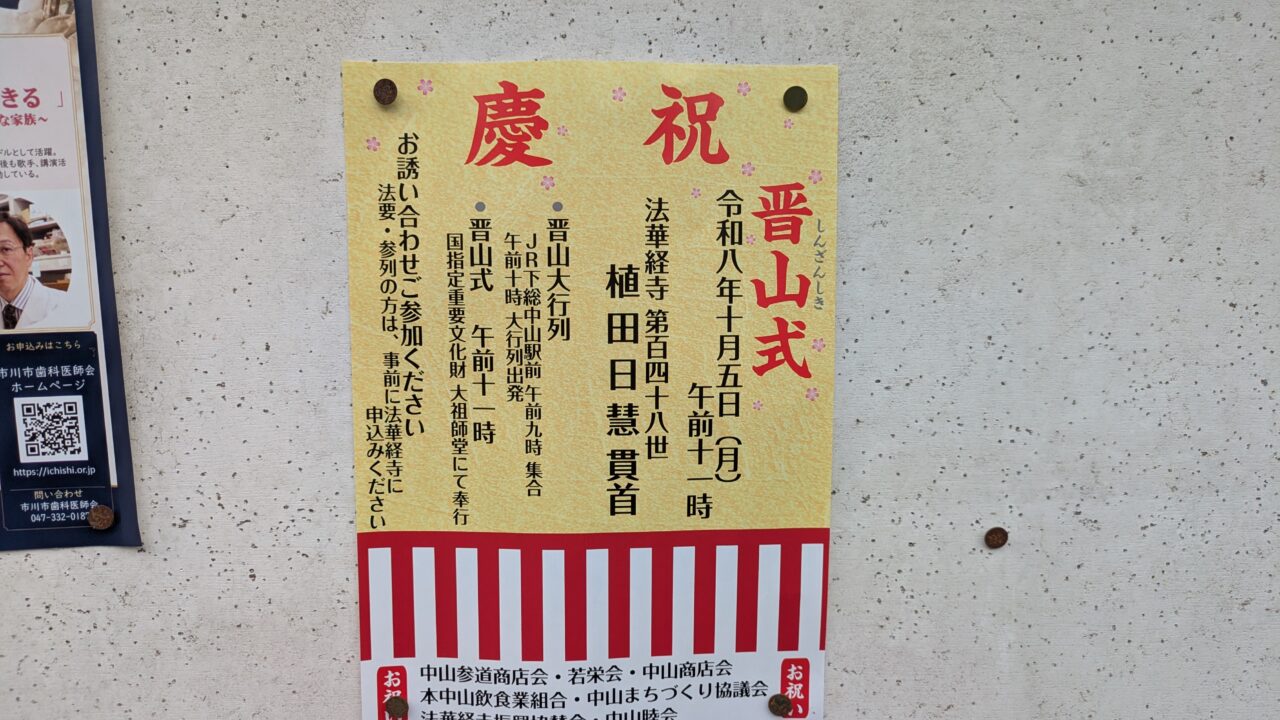 慶祝
晋山式
しんざんしき
令和八年十月五日（月）
午前十一時
法華経寺 第百四十八世
植田日慧貫首
●晋山大行列
JR下総中山駅前 午前九時 集合
午前十時 大行列出発
●晋山式 午前十一時
国指定重要文化財 大祖師堂にて奉行
お誘い合わせご参加ください
法要・参列の方は、事前に法華経寺に
申込みください
お祝い
中山参道商店会・若栄会・中山商店会
本中山飲食業組合・中山まちづくり協議会
法華経寺振興協賛会・中山睦会
お祝い
きる」
な家族～
ドルとして活躍。
後も歌手、講演活
している。
お申込みはこちら
市川市歯科医師会
ホームページ
https://ichishi.or.jp
問い合わせ
市川市歯科医師会
047-332-018